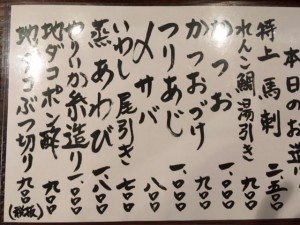 本日のお造り
特上馬刺 二、五〇〇
れんこ鯛湯引き 九〇〇
かつお 一、〇〇〇
かつおづけ 九〇〇
つりあじ 一、〇〇〇
〆サバ 八〇〇
いわし尾引き 七〇〇
蒸あわび 一、八〇〇
やりいか糸造り 一、〇〇〇
地ダコポン酢 九〇〇
地ダコぶつ切り 九〇〇